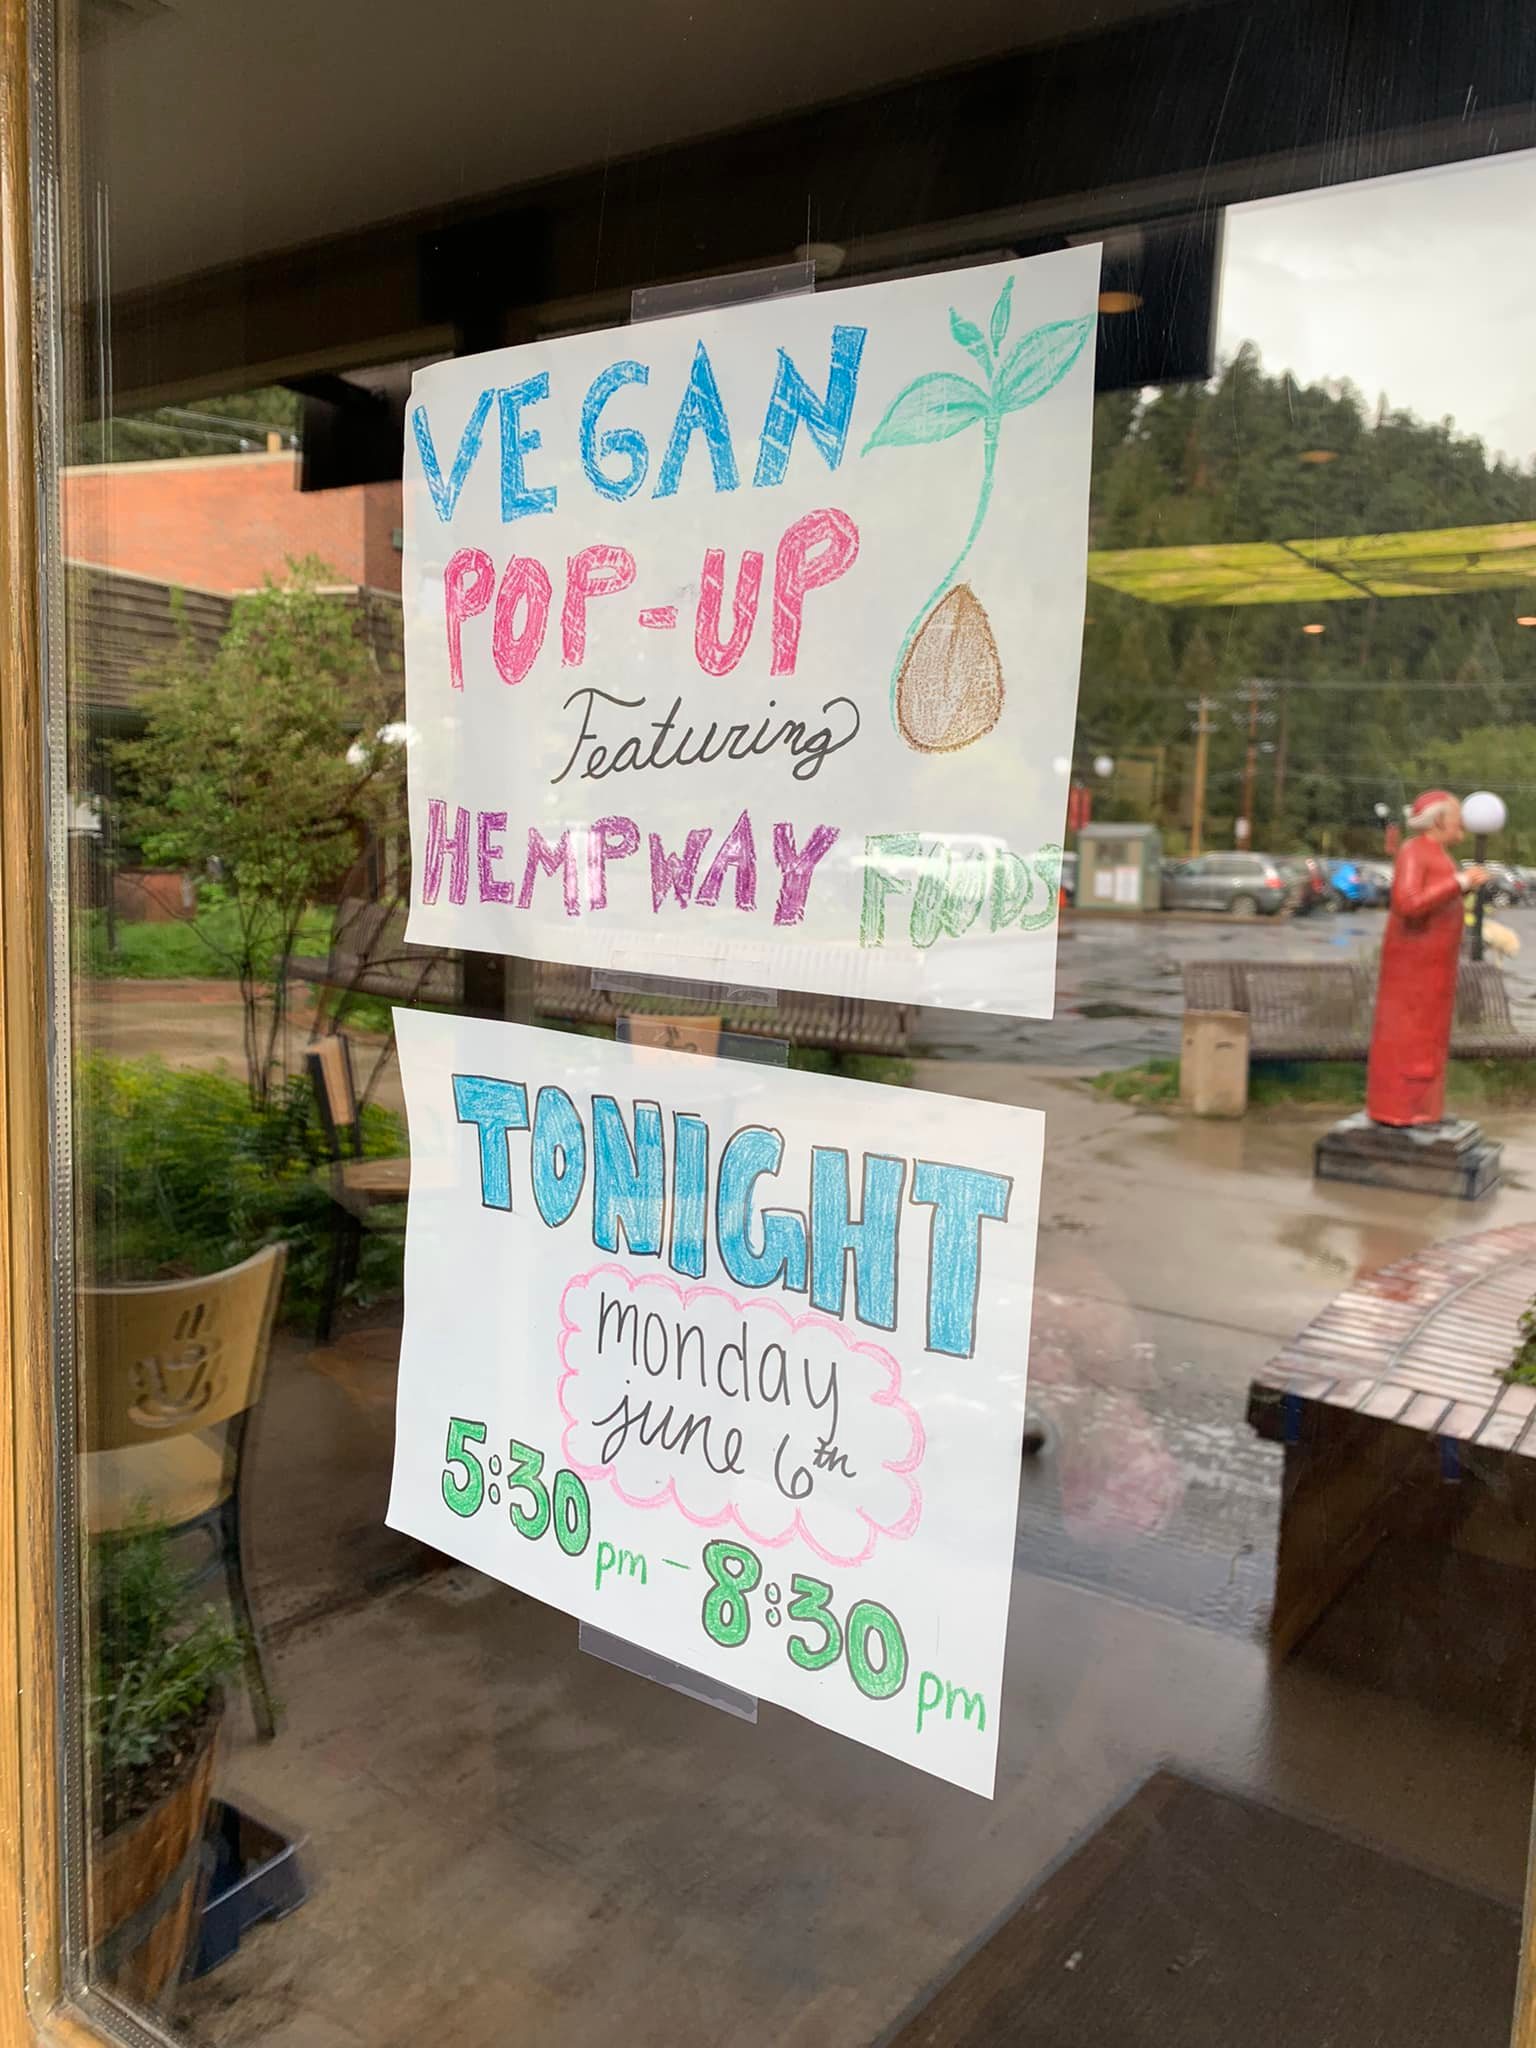 VEGAN
POP-UP
Featuring
HEMPWAY FOODS
TONIGHT
monday
june 6th
5:30 pm - 8:30 pm